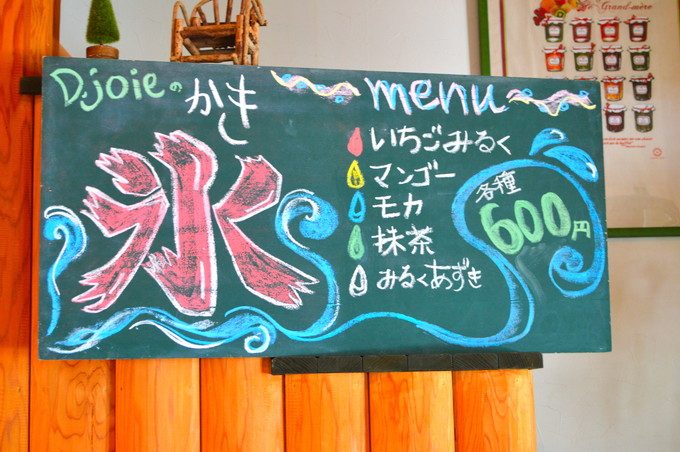 D.joieの
かき
氷
menu
いちごみるく
マンゴー
モカ
抹茶
みるくあずき
各種
600円
Grand-mère